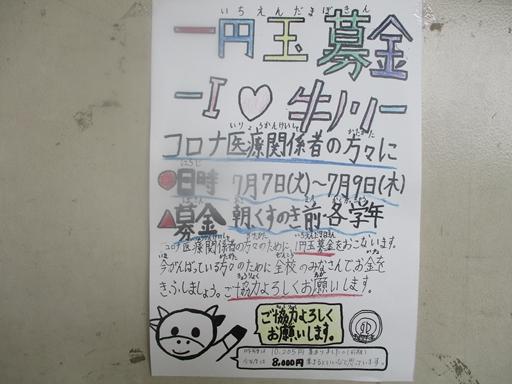 いちえんだまぼきん
一円玉募金
ーI♡牛ノリー
いりょうかんけいしゃ かたがた
コロナ医療関係者の方々に
にちじ
●日時 7月7日(火)～7月9日(木)
ぼきん
▲募金 朝くすのき前・各学年
コロナ医療関係者の方々のために、1円玉募金をおこないます。
今がんばっている方々のために全校のみなさんでお金を
きふしましょう。ご協力よろしくお願いします。
ご協力よろしく
お願いします。
10,205円集まりました
8,000円集まるといいなと思っています。